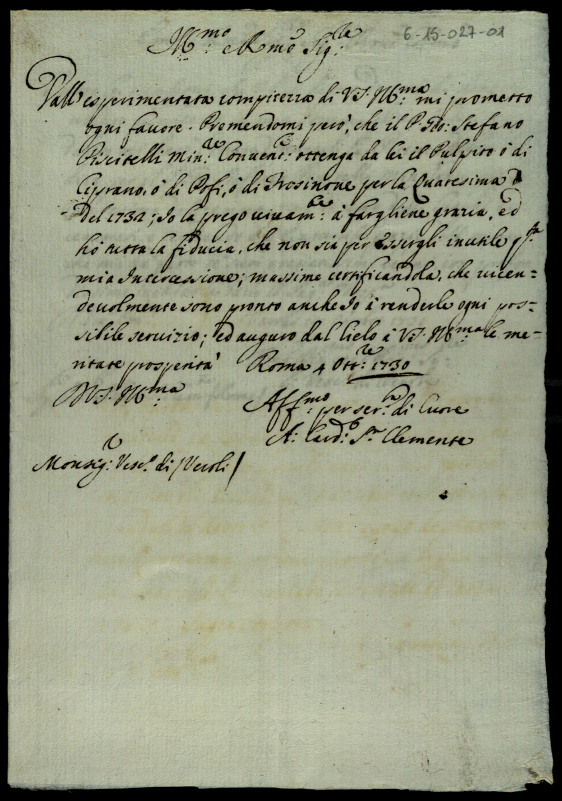 6-15-027-01
Ill:mo e Rmo Sig:re
Dall'esperimentata compitezza di VS. Ill:ma mi prometto
ogni favore. Premendomi però, che il P. Fro: Stefano
Piscitelli Min:re Convenle: ottenga da lei il Pulpito ò di
Ciprano, ò di Pofi, ò di Frosinone per la Quaresima
del 1732; Io la prego vivam:te à fargliene grazia, ed
hò tutta la fiducia, che non sia per essergli inutile q:sta
mia Intercessione; massime certificandola, che vicen=
devolmente sono pronto anche Io à renderle ogni pos=
sibile servizio; ed auguro dal Cielo à VS. Ill:ma le me=
ritate prosperità Roma 4 Ott:re 1730
DVS. Ill:ma
Aff:mo per ser:la di Cuore
A: Card: S:n Clemente
Monsig:r Vesc:o di Veroli